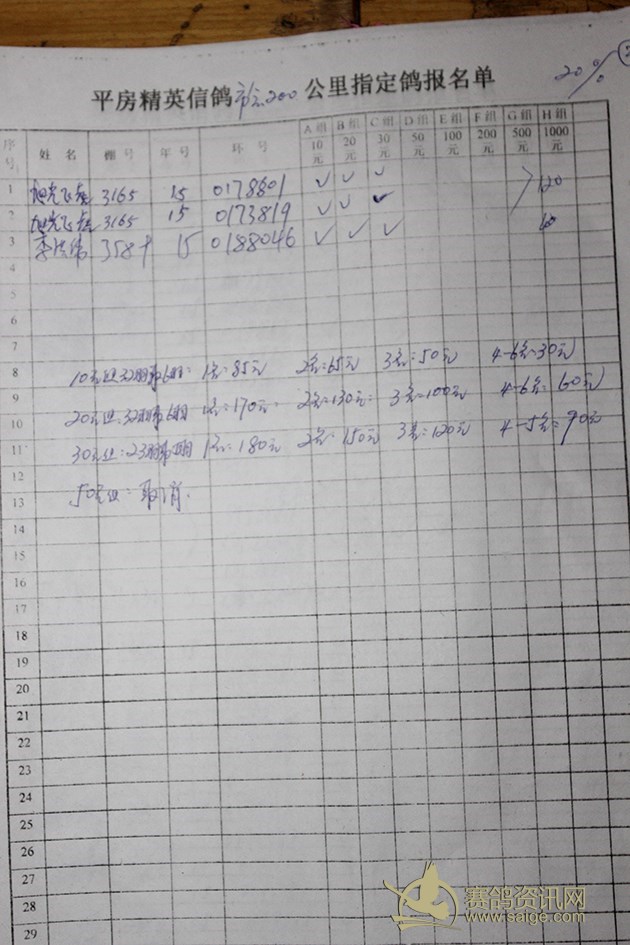 20%
平房精英信鸽 200 公里指定鸽报名单
序号 姓 名 棚 号 年 号 环 号 A 组 10 元 B 组 20 元 C 组 30 元 D 组 50 元 E 组 100 元 F 组 200 元 G 组 500 元 H 组 1000 元
1 旭光飞翔 3165 15 0178601 ✓ ✓ 120
2 旭光飞翔 3165 15 0173819 ✓ ✓ ✓
3 15 0188046 ✓ ✓ ✓
4
5
6
7
8 10元组:32羽 1名:85元 2名:65元 3名:50元 4-6名:30元
9
10 20元组:32羽 1名:170元 2名:130元 3名:100元 4-6名:60元
11 30元组:23羽 1名:180元 2名:150元 3名:120元 4-5名:90元
12
13 50元组:取消.
14
15
16
17
18
19
20
21
22
23
24
25
26
27
28
29
赛鸽资讯网
www.saige.com